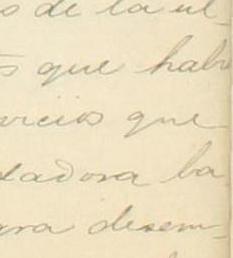 os de la ul-
s que habi
vicios que
tadora ba
ara desem-